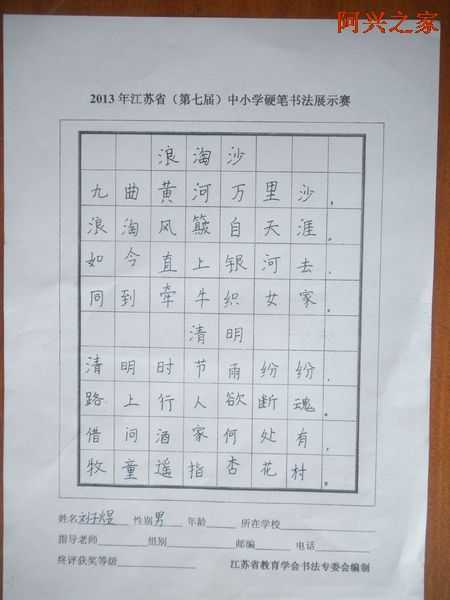 阿兴之家
2013年江苏省（第七届）中小学硬笔书法展示赛
浪淘沙
九曲黄河万里沙，
浪淘风簸自天涯。
如今直上银河去，
同到牵牛织女家。
清明
清明时节雨纷纷，
路上行人欲断魂。
借问酒家何处有，
牧童遥指杏花村。
姓名刘子煜 性别男 年龄 所在学校
指导老师 组别 邮编 电话
终评获奖等级 江苏省教育学会书法专委会编制